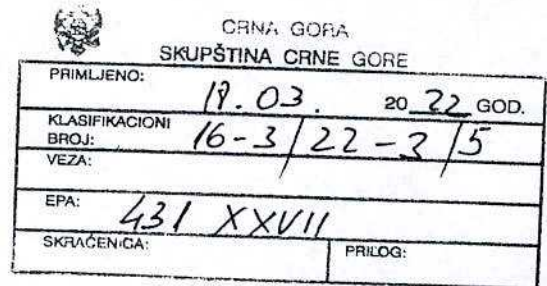 CRNA GORA
SKUPŠTINA CRNE GORE
PRIMLJENO: 18.03. 20 22 GOD.
KLASIFIKACIONI BROJ: 16-3/22-3/5
VEZA:
EPA: 431 XXVII
SKRAĆENICA: PRILOG: